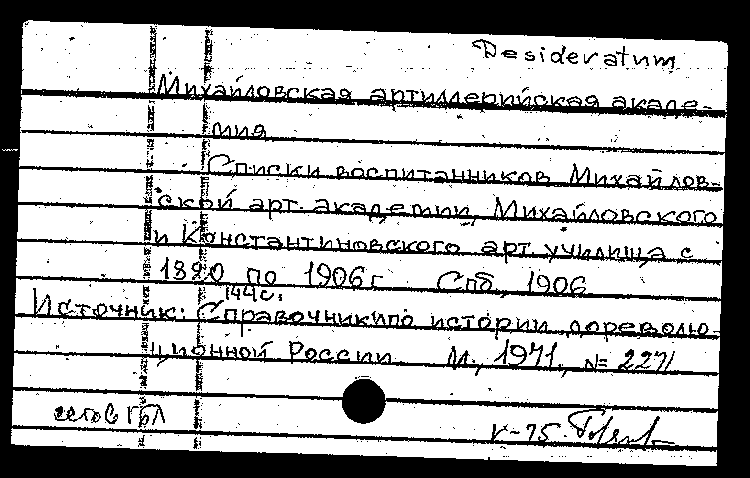 Desideratum
Михайловская артиллерийская акаде-
мия
Списки воспитанников Михайлов-
ской арт. академии, Михайловского
и Константиновского арт. училища с
1820 по 1906 г. Спб., 1906
144 с.
Источник: Справочники по истории дореволю-
ционной России. М., 1971, № 2271
есть в ГБЛ
V-75